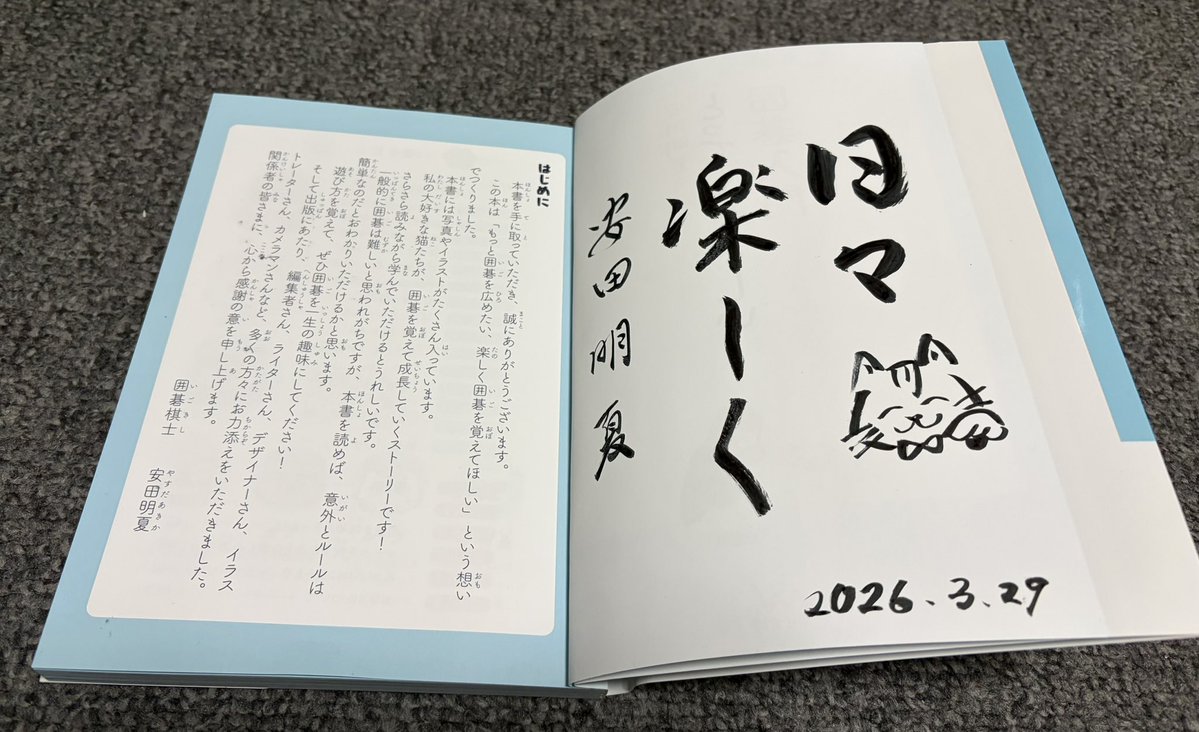 日々
楽しく
安田明夏
2026.3.29
はじめに
本書を手に取っていただき、誠にありがとうございます。
この本は「もっと囲碁を広めたい、楽しく囲碁を覚えてほしい」という想い
でつくりました。
本書には写真やイラストがたくさん入っています。
私の大好きな猫たちが、囲碁を覚えて成長していくストーリーです！
さらさら読みながら学んでいただけるとうれしいです。
一般的に囲碁は難しいと思われがちですが、本書を読めば、意外とルールは
簡単なのだとおわかりいただけるかと思います。
遊び方を覚えて、ぜひ囲碁を一生の趣味にしてください！
そして出版にあたり、編集者さん、ライターさん、デザイナーさん、イラス
トレーターさん、カメラマンさんなど、多くの方々にお力添えをいただきました。
関係者の皆さまに、心から感謝の意を申し上げます。
囲碁棋士　安田明夏